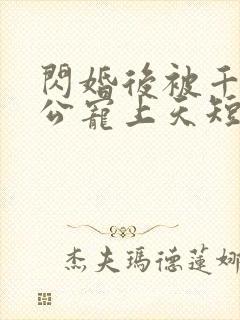 閃婚後被千
公寵上天短
杰夫瑪德蓮娜